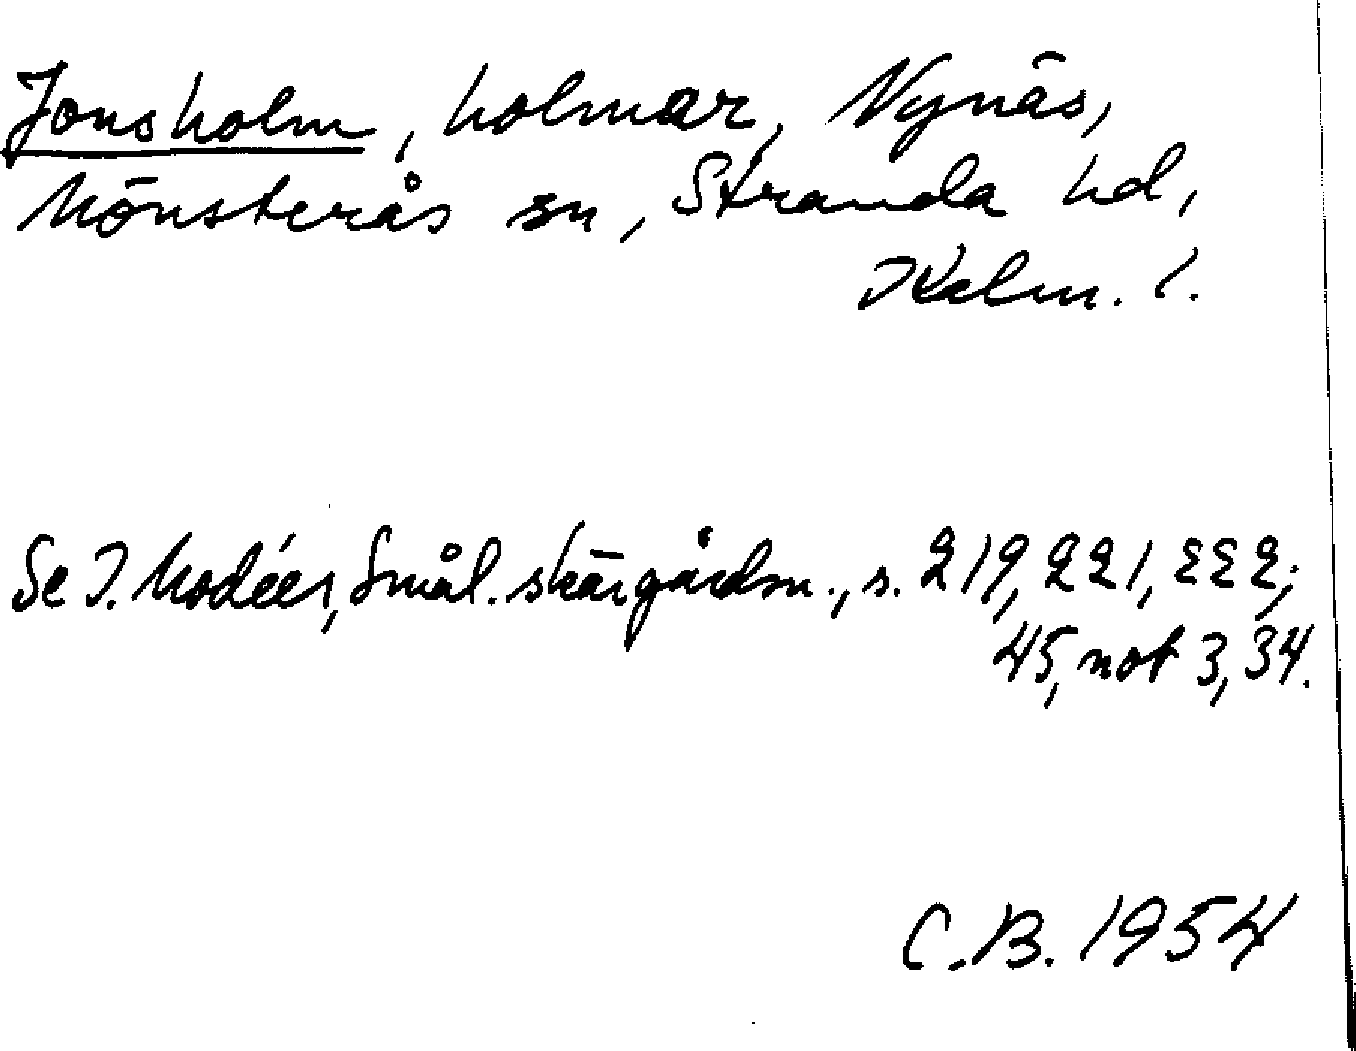 Jonsholm, holmar, Nynäs,
Mönsterås sn, Stranda hd,
Kalm. l.
Se I. Modéer, Smål. skärgårdsn., s. 219, 221, 222;
45, not 3, 34.
C.B. 1954